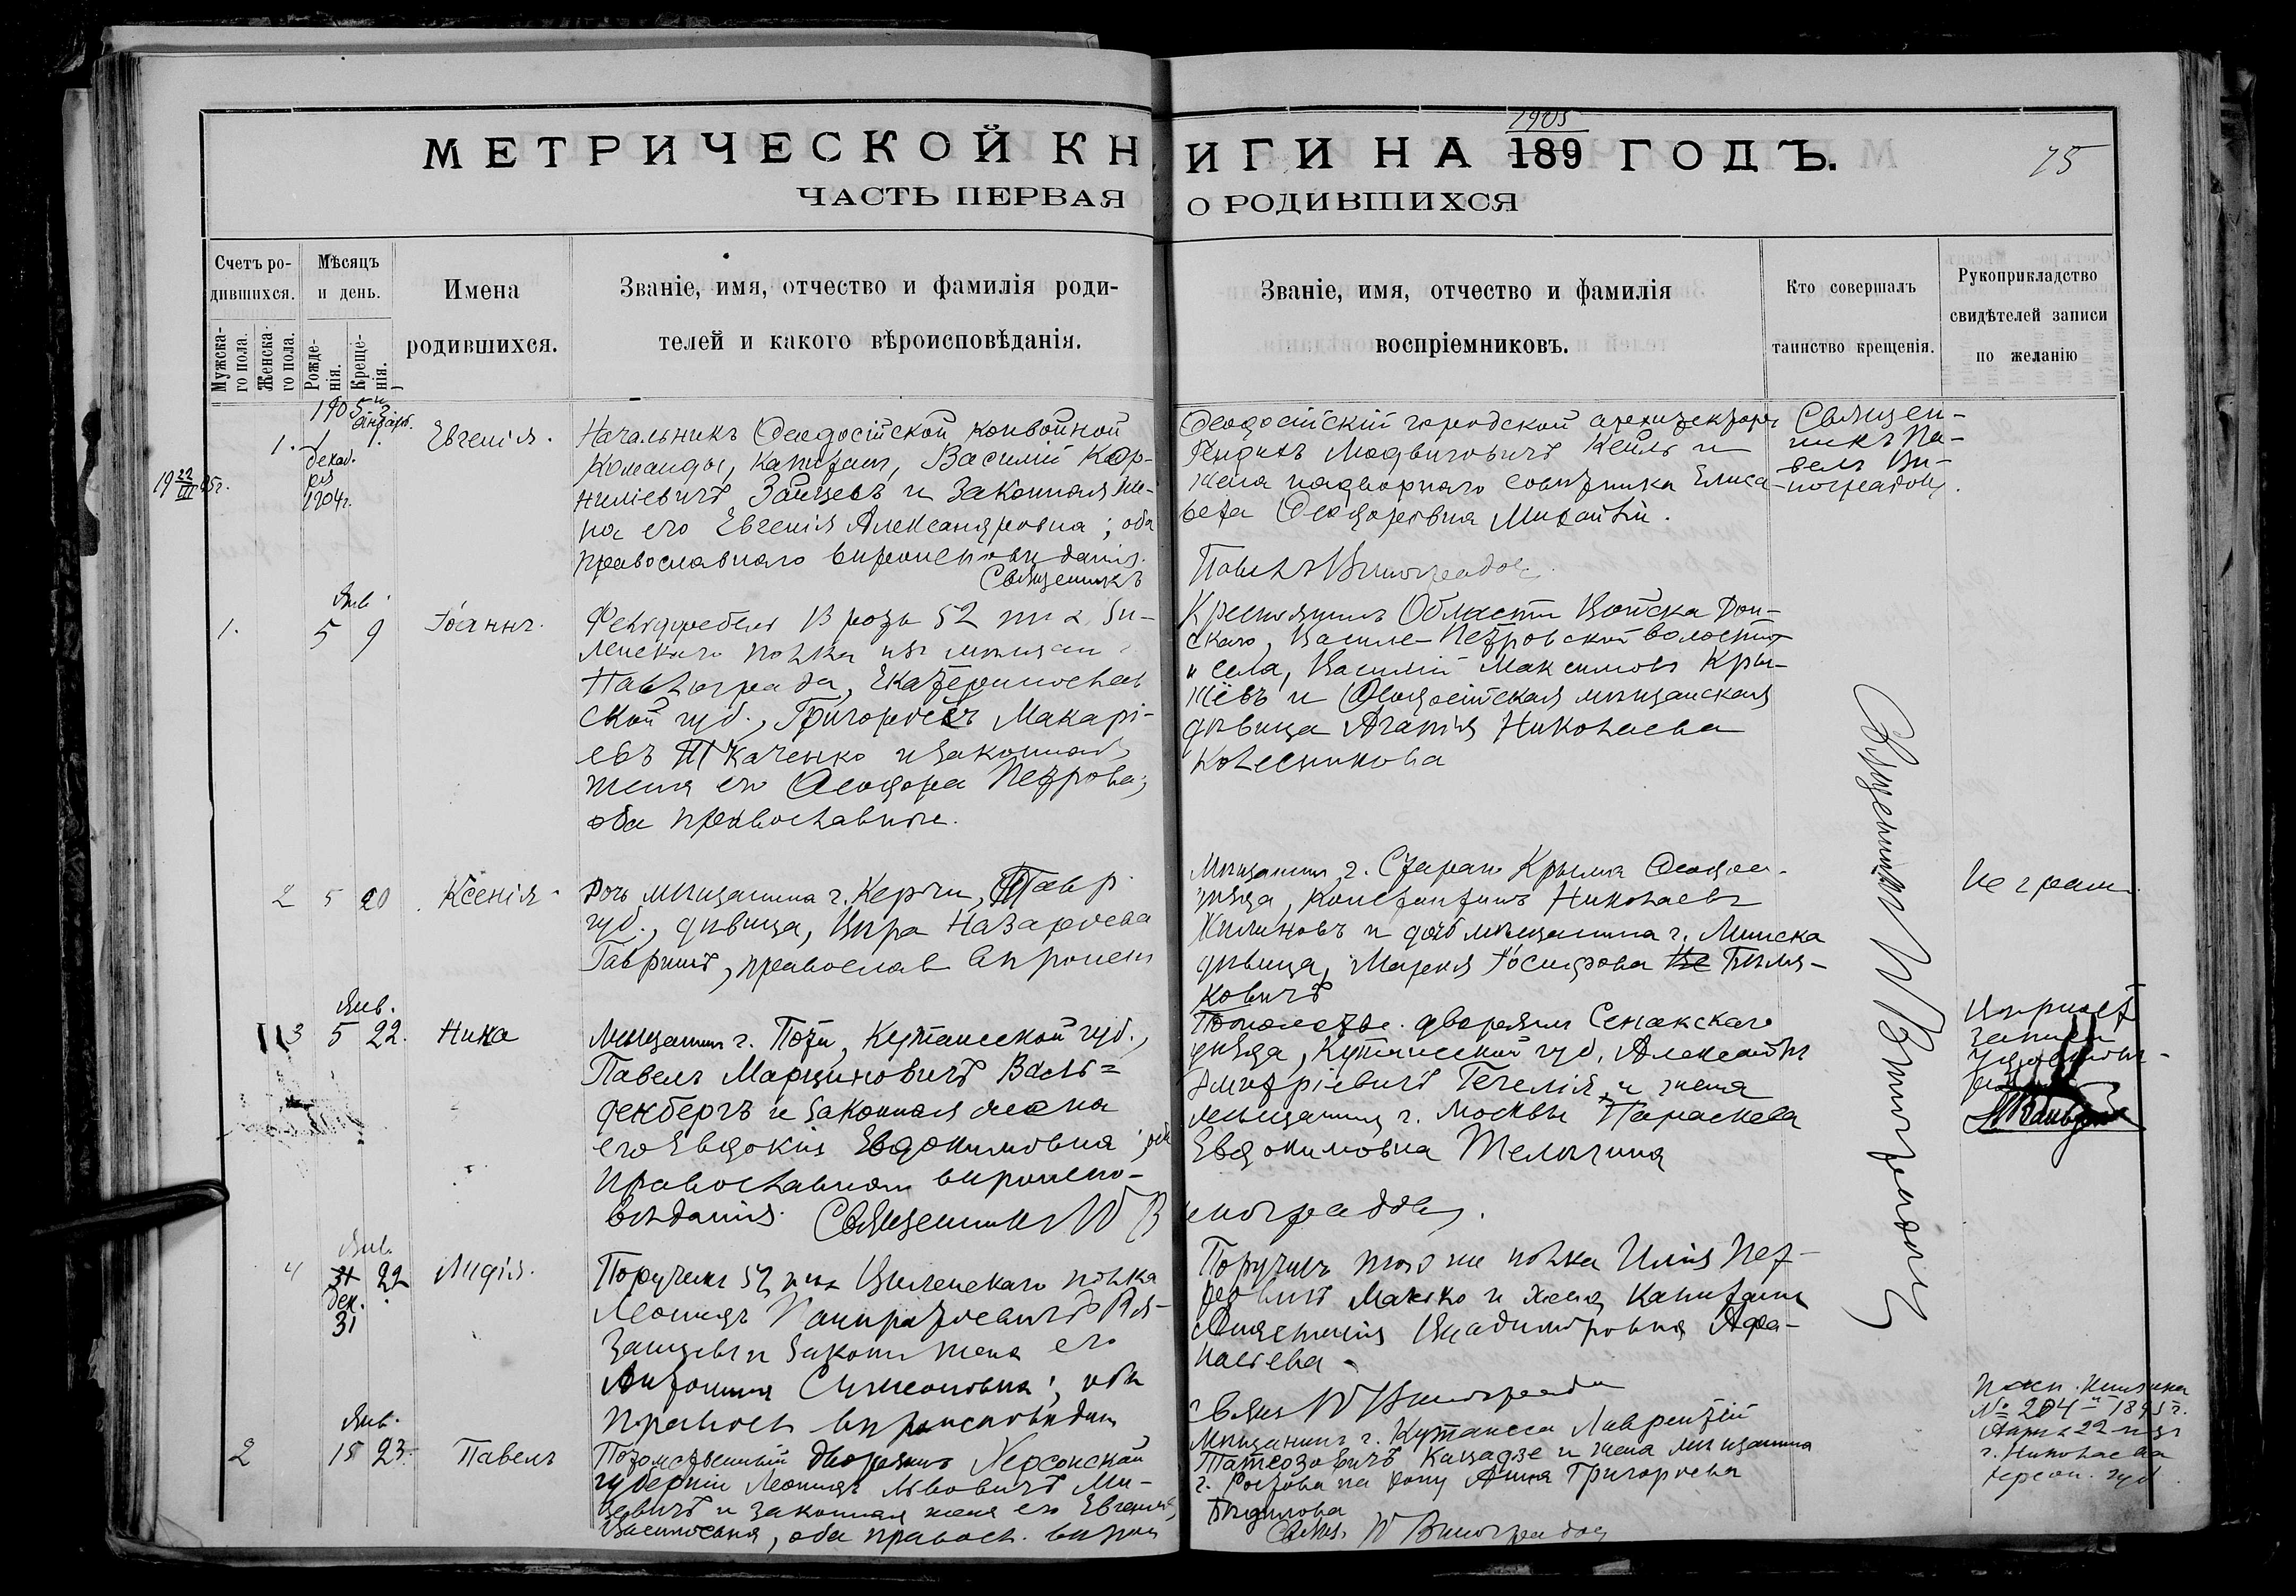 МЕТРИЧЕСКОЙ КНИГИ НА 189 ГОДЪ.
1905
75
ЧАСТЬ ПЕРВАЯ О РОДИВШИХСЯ
Счетъ ро-
дившихся.
Мужска-
го пола.
Женска-
го пола.
Мѣсяцъ
и день.
Рожде-
нія.
Креще-
нія.
Имена
родившихся.
Званіе, имя, отчество и фамилія роди-
телей и какого вѣроисповѣданія.
Званіе, имя, отчество и фамилія
воспріемниковъ.
Кто совершалъ
таинство крещенія.
Рукоприкладство
свидѣтелей записи
по желанію
1905 г.
1.
1.
декаб.
1904г.
Евгенія.
Начальникъ Ѳеодосійской конвойной
команды, капитанъ, Василій Кор-
ниліевичъ Зайцевъ и законная же-
на его Евгенія Александровна; оба
православнаго вѣроисповѣданія.
Священникъ
Ѳеодосійскій городской архитекторъ
Людвиговичъ Кейль и
жена надворнаго совѣтника Елиса-
вета Ѳеодоровна Михайли.
Павелъ Виноградовъ
Священ-
никъ Па-
велъ Ви-
ноградовъ.
Янв.
1.
5 9
Іоаннъ.
Фельдфебель 13 роты 52 Ви-
ленскаго полка изъ мѣщан
Павлограда, Екатеринослав
ской губ., Григорій Макарі-
евъ Ткаченко и законная
жена его Ѳеодора Петрова;
оба православные.
Крестьянинъ Области Войска Дон-
скаго, Василе-Петровской волости
и села, Василій Максимовъ Кры-
жёвъ и Ѳеодосійская мѣщанская
дѣвица Агапія Николаева
Колесникова
Священникъ П Виноградовъ
2 5 20
Ксенія
Дочь мѣщанина г. Керчи, Тавр.
губ., дѣвица, Вѣра Назарова
Гавришъ, православ вѣроисп
Мѣщанинъ г. Стараго Крыма Ѳеодос.
уѣзда, Константинъ Николаевъ
Жилиновъ и дочь мѣщанина г. Минска
дѣвица, Марія Іосифова Бѣля-
ковичъ
Не грам.
Янв.
3 5 22.
Нина
Мѣщанинъ г. Поти, Кутаисской губ.,
Павелъ Марциновичъ Валь=
денбергъ и законная жена
его Евдокія Евдокимовна; оба
православнаго вѣроиспо-
вѣданія. Священникъ П Виноградовъ.
Потомств. дворянинъ Сенакскаго
уѣзда, Кутаисской губ. Александръ
Дмитріевичъ Гегелія и жена
мѣщанина г. Москвы Параскева
Евдокимовна Телыгина
Янв.
4 31 22
Дек.
31
Лидія.
Поручикъ 52 Виленскаго полка
Леонидъ Панкратьевичъ Вя-
занцевъ и законн жена его
Антонина Симеоновна; оба
правосл вѣроисповѣдан
Поручикъ того же полка Илія Пет-
ровичъ Макко и жена капитана
Анастасія Владиміровна Афа-
насьева
Свящ П Виноградовъ
Янв.
2 15 23.
Павелъ
Потомственный дворянинъ Херсонской
губерніи Леонидъ Львовичъ Ми-
цевичъ и законная жена его Евгенія
Васильевна, оба правосл. вѣроис
Мѣщанинъ г. Кутаиса Лаврентій
Татеозовичъ Кацадзе и жена мѣщанина
г. Ростова на Дону Анна Григорьева
Бѣдилова
Свящ. П Виноградовъ
№ 204 1895 г.
22
г. Николаева
Херсон. губ.